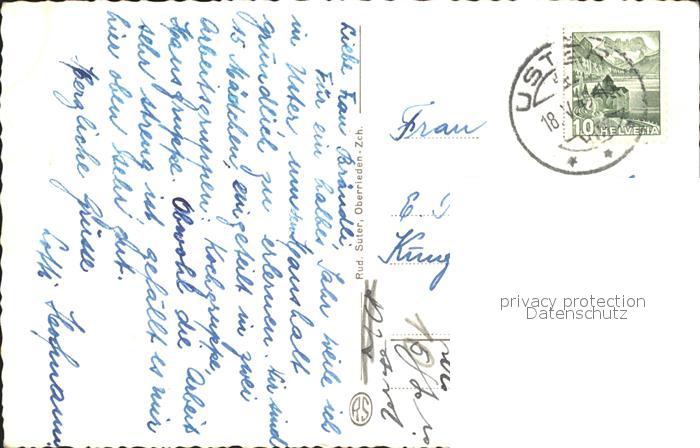 Liebe Frau Brändli,
Für ein halbes Jahr weile ich
in Uster, um den Haushalt
gründlich zu erlernen. Wir sind
15 Mädchen, eingeteilt in zwei
Arbeitsgruppen: Kochgruppe,
Hausgruppe. Obwohl die Arbeit
sehr streng ist, gefällt es mir
hier oben sehr gut.
Herzliche Grüsse
Lotti Hofmann
Rud. Suter, Oberrieden-Zch.
Frau
E.
USTER
18.
10 HELVETIA
privacy protection
Datenschutz